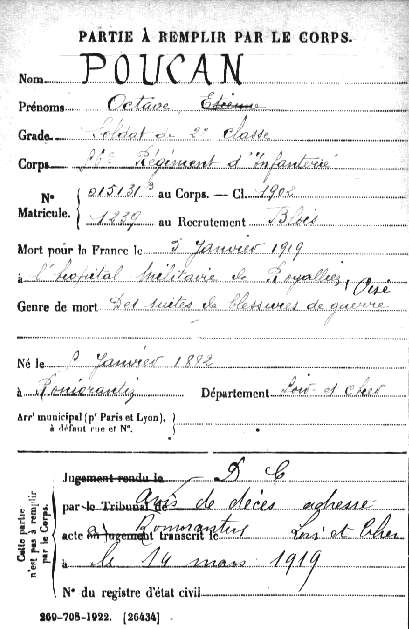 PARTIE À REMPLIR PAR LE CORPS.
Nom POUCAN
Prénoms Octave Etienne
Grade Soldat de 2e Classe
Corps Régiment d'Infanterie
Nº Matricule. 015131 au Corps. — Cl. 1902
1239 au Recrutement Blois
Mort pour la France le 3 Janvier 1919
à l'hopital militaire de Royallieu, Oise
Genre de mort Des suites de blessures de guerre
Né le Janvier 1882
à Romorantin Département Loir et Cher
Arrt municipal (pr Paris et Lyon),
à défaut rue et Nº.
Cette partie n'est pas à remplir par le Corps.
Jugement rendu le D C
par le Tribunal de Avis de décès adressé
acte ou jugement transcrit le à Romorantin Loir et Cher
à le 14 mars 1919
Nº du registre d'état civil
269-708-1922. [26434]